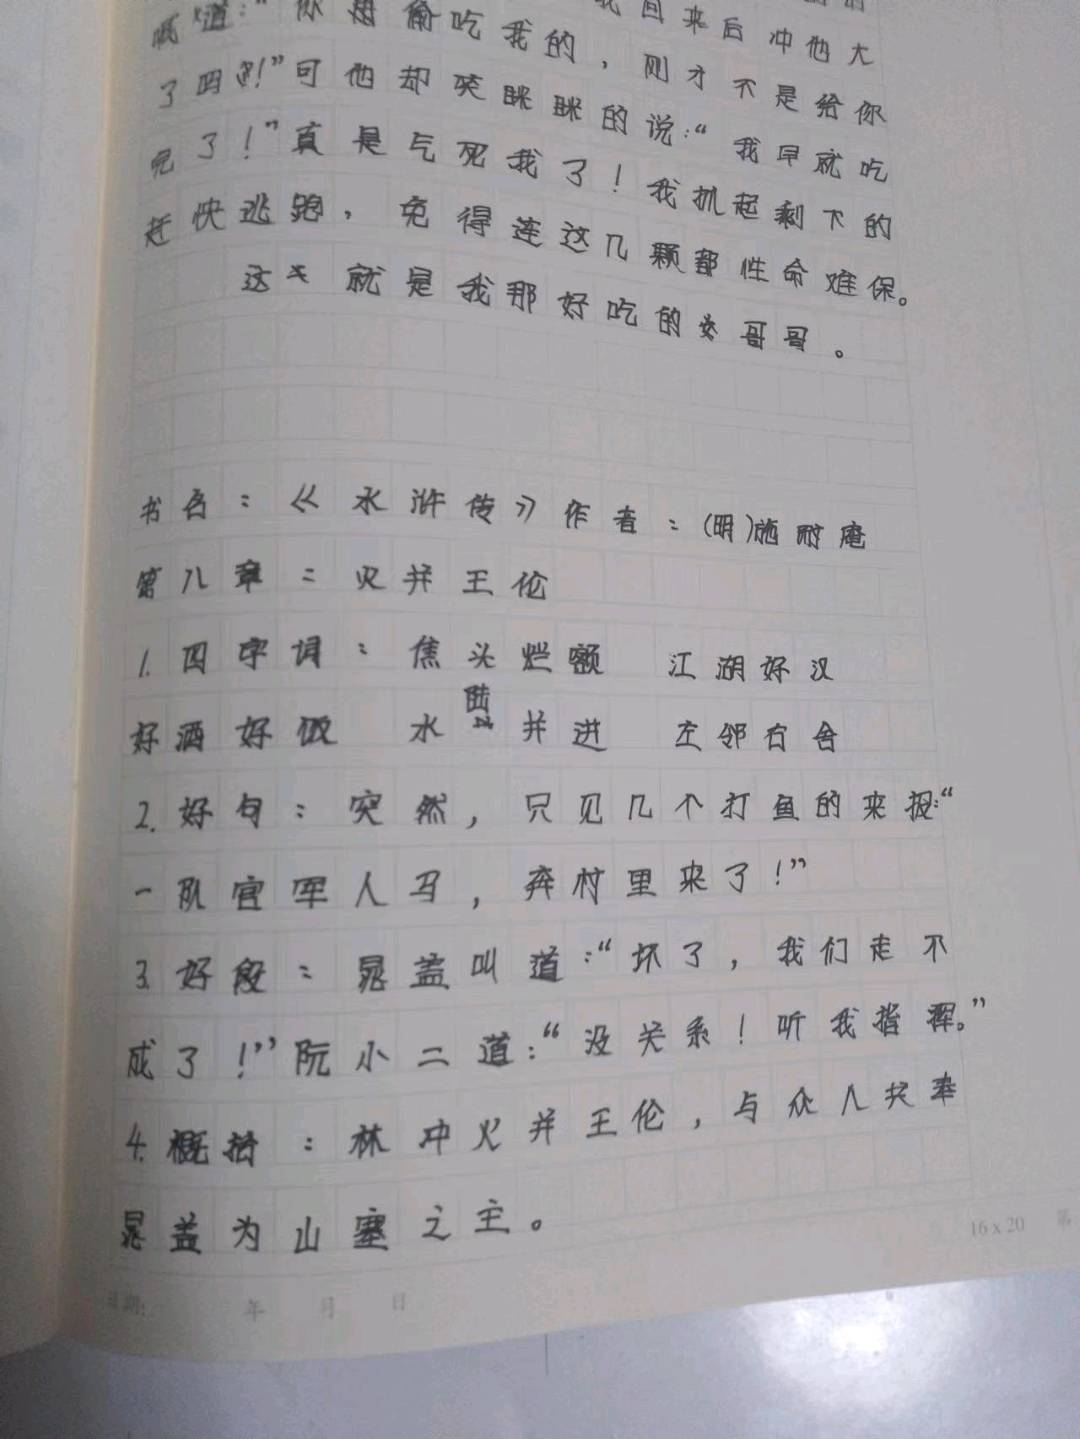 我回来后冲他大
道：“你想偷吃我的，刚才不是给你
了四！”可他却笑眯眯的说：“我早就吃
完了！”真是气死我了！我抓起剩下的
赶快逃跑，免得连这几颗都性命难保。
这就是我那好吃的哥哥。
书名：《水浒传》作者：（明）施耐庵
第八章：火并王伦
1.四字词：焦头烂额 江湖好汉
好酒好饭 水陆并进 左邻右舍
2.好句：突然，只见几个打鱼的来报：“
一队官军人马，奔村里来了！”
3.好段：晁盖叫道：“坏了，我们走不
成了！”阮小二道：“没关系！听我指挥。”
4.概括：林冲火并王伦，与众人共奉
晁盖为山塞之主。
16x20 第
日期： 年 月 日